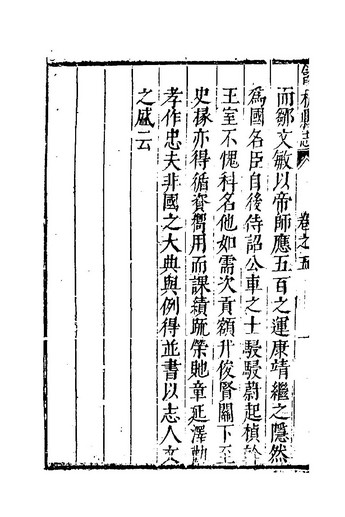 縣志
卷之五
一
而鄒文敏以帝師應五百之運康靖繼之隱然
爲國名臣自後待詔公車之士駸駸蔚起楨幹
王室不愧科名他如需次貢額升俊賢關下至
史掾亦得循資嚮用而課績疏榮貤章延澤勸
孝作忠夫非國之大典與例得並書以志人文
之盛云